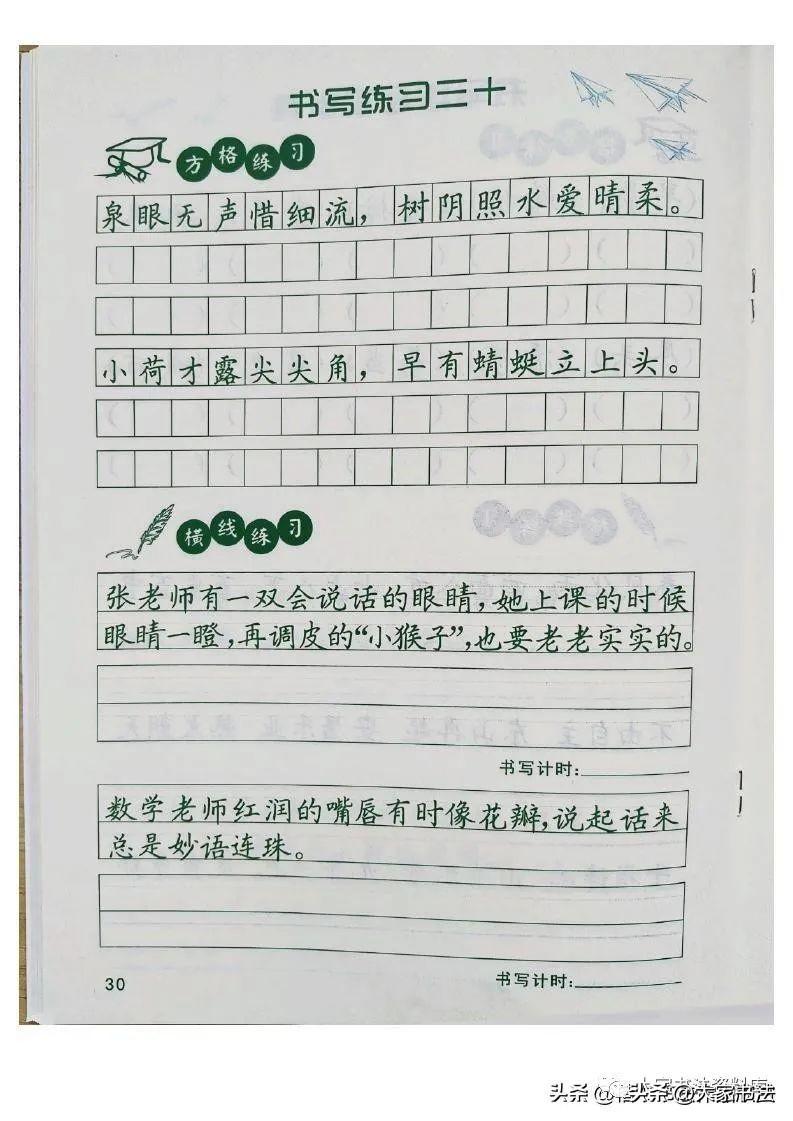 书写练习三十
方格练习
泉眼无声惜细流，树阴照水爱晴柔。
小荷才露尖尖角，早有蜻蜓立上头。
横线练习
张老师有一双会说话的眼睛，她上课的时候
眼睛一瞪，再调皮的“小猴子”，也要老老实实的。
书写计时：
数学老师红润的嘴唇有时像花瓣，说起话来
总是妙语连珠。
书写计时：
30
头条@大家书法